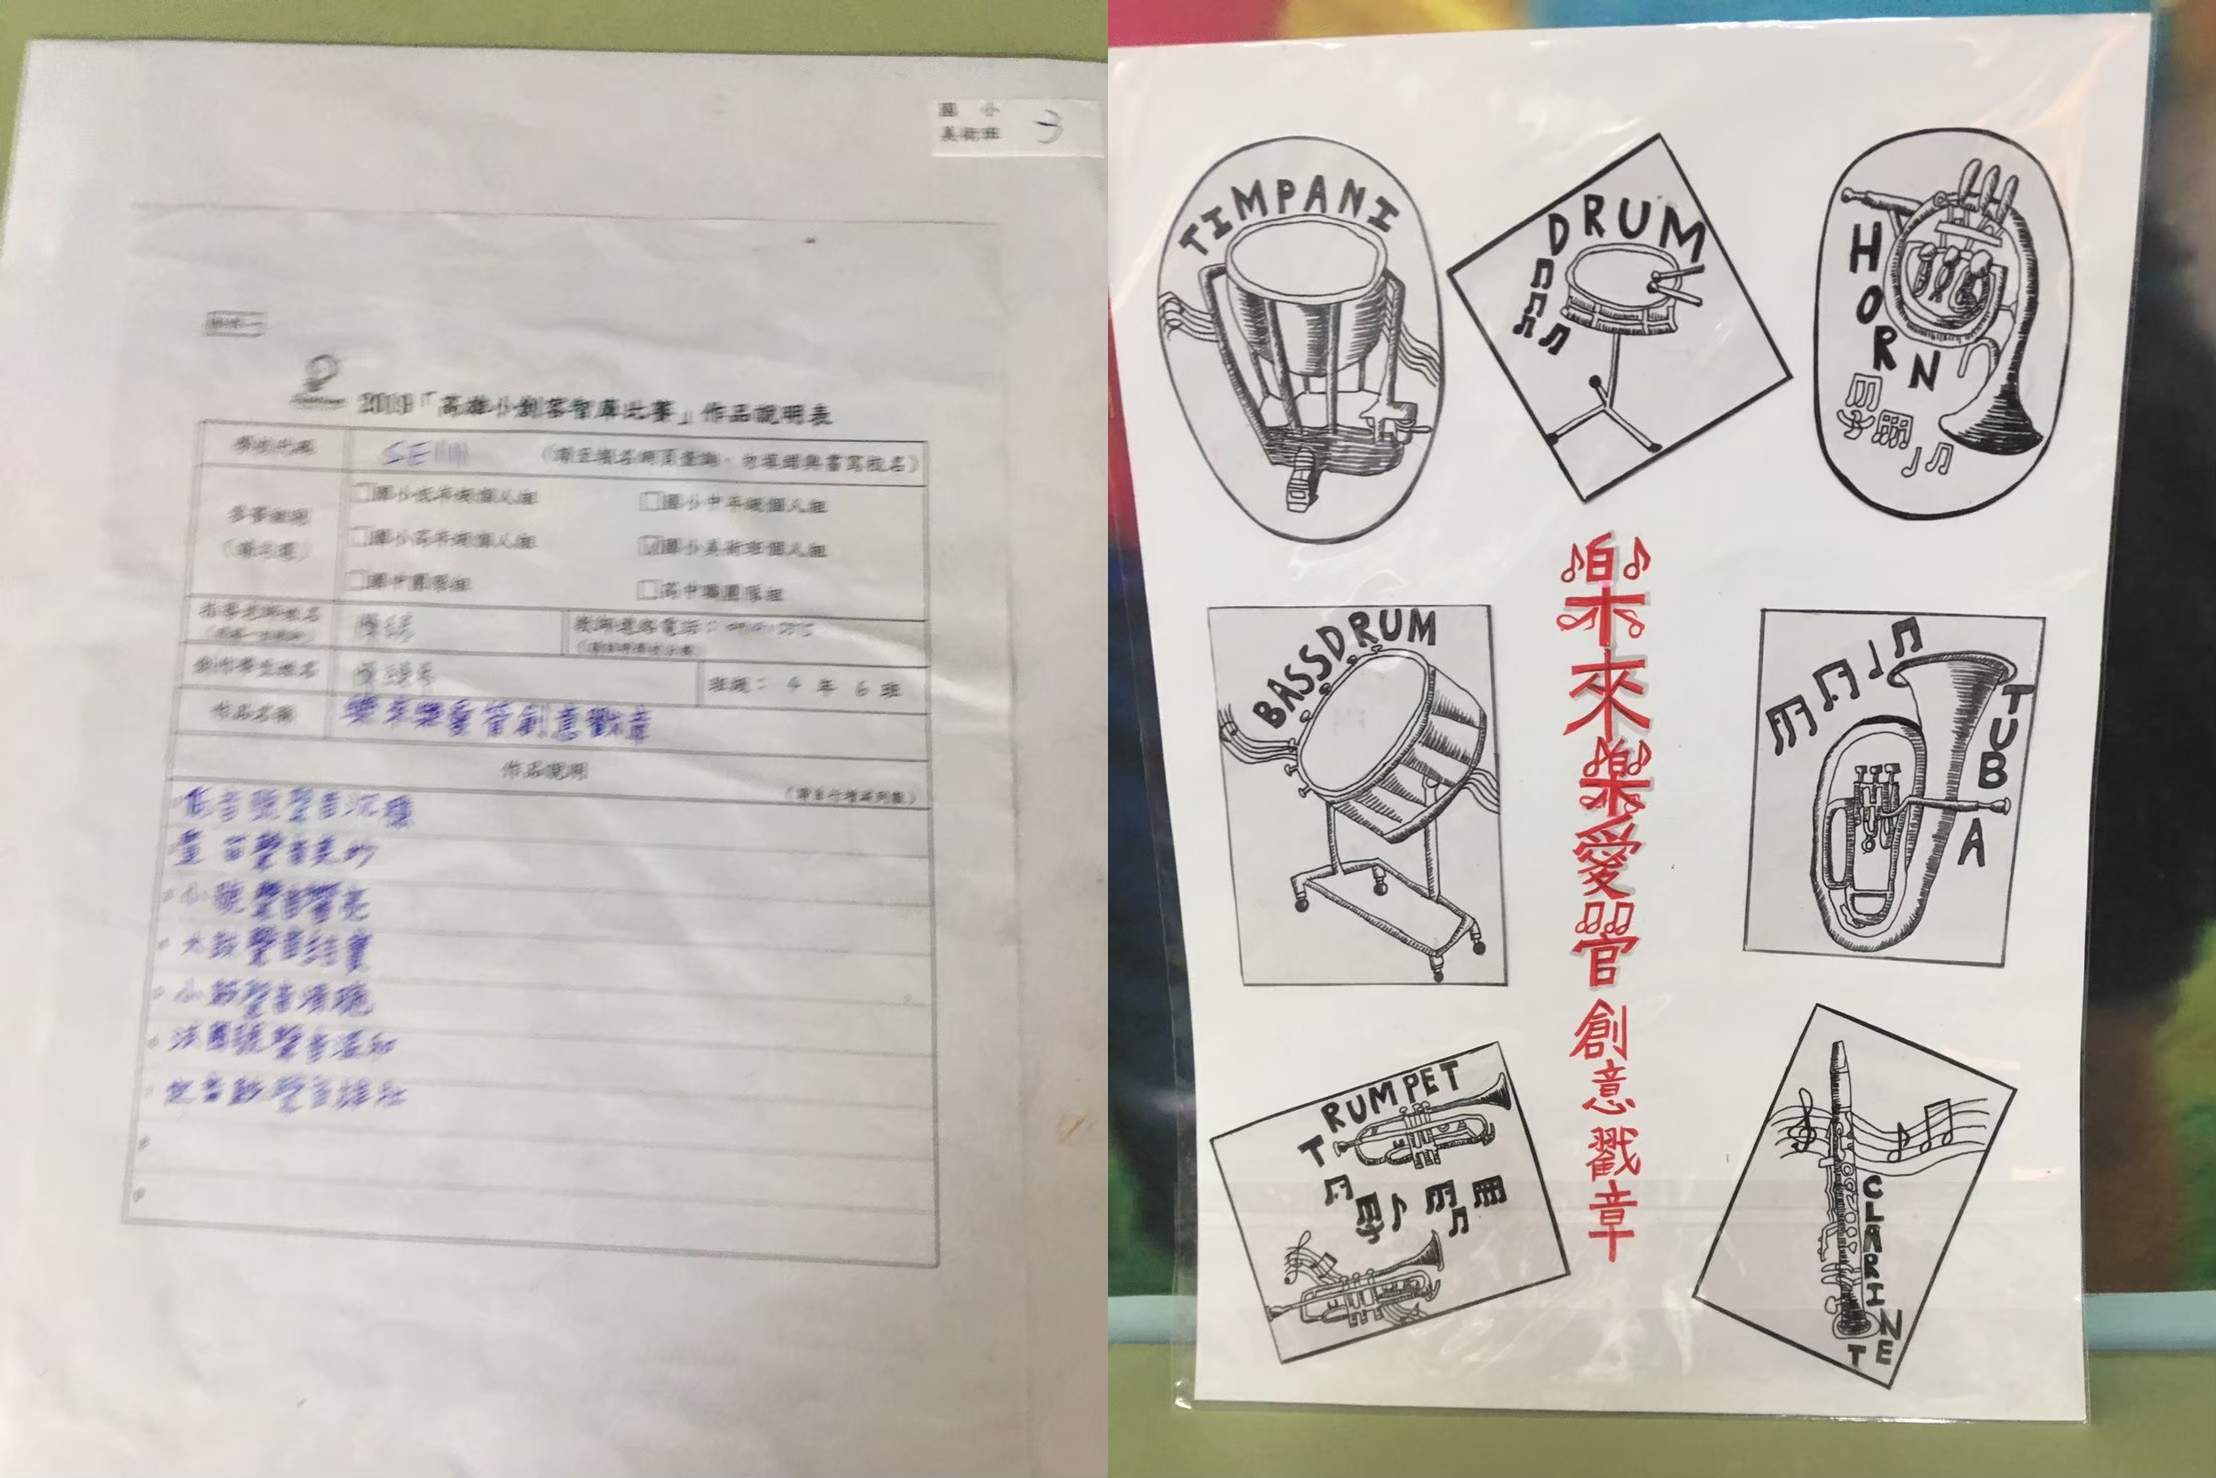 國小
美術班 3
附件一
2019「高雄小創客智庫比賽」作品說明表
學校代碼
(請至報名網頁查詢，勿填錯與書寫校名)
參賽組別
(請勾選)
□國小低年級個人組 □國小中年級個人組
□國小高年級個人組 ☑國小美術班個人組
□國中團隊組 □高中職團隊組
指導老師姓名
教師連絡電話：
創作學生姓名
班級： 4 年 6 班
作品名稱 樂來樂愛管創意戳章
作品說明
(請自行增減列數)
低音號聲音沉穩
豎笛聲音柔的
小號聲音響亮
大鼓聲音結實
小鼓聲音清脆
法國號聲音溫和
定音鼓聲音雄壯
TIMPANI
DRUM
HORN
BASSDRUM
TUBA
TRUMPET
CLARINET
樂來樂愛管創意戳章